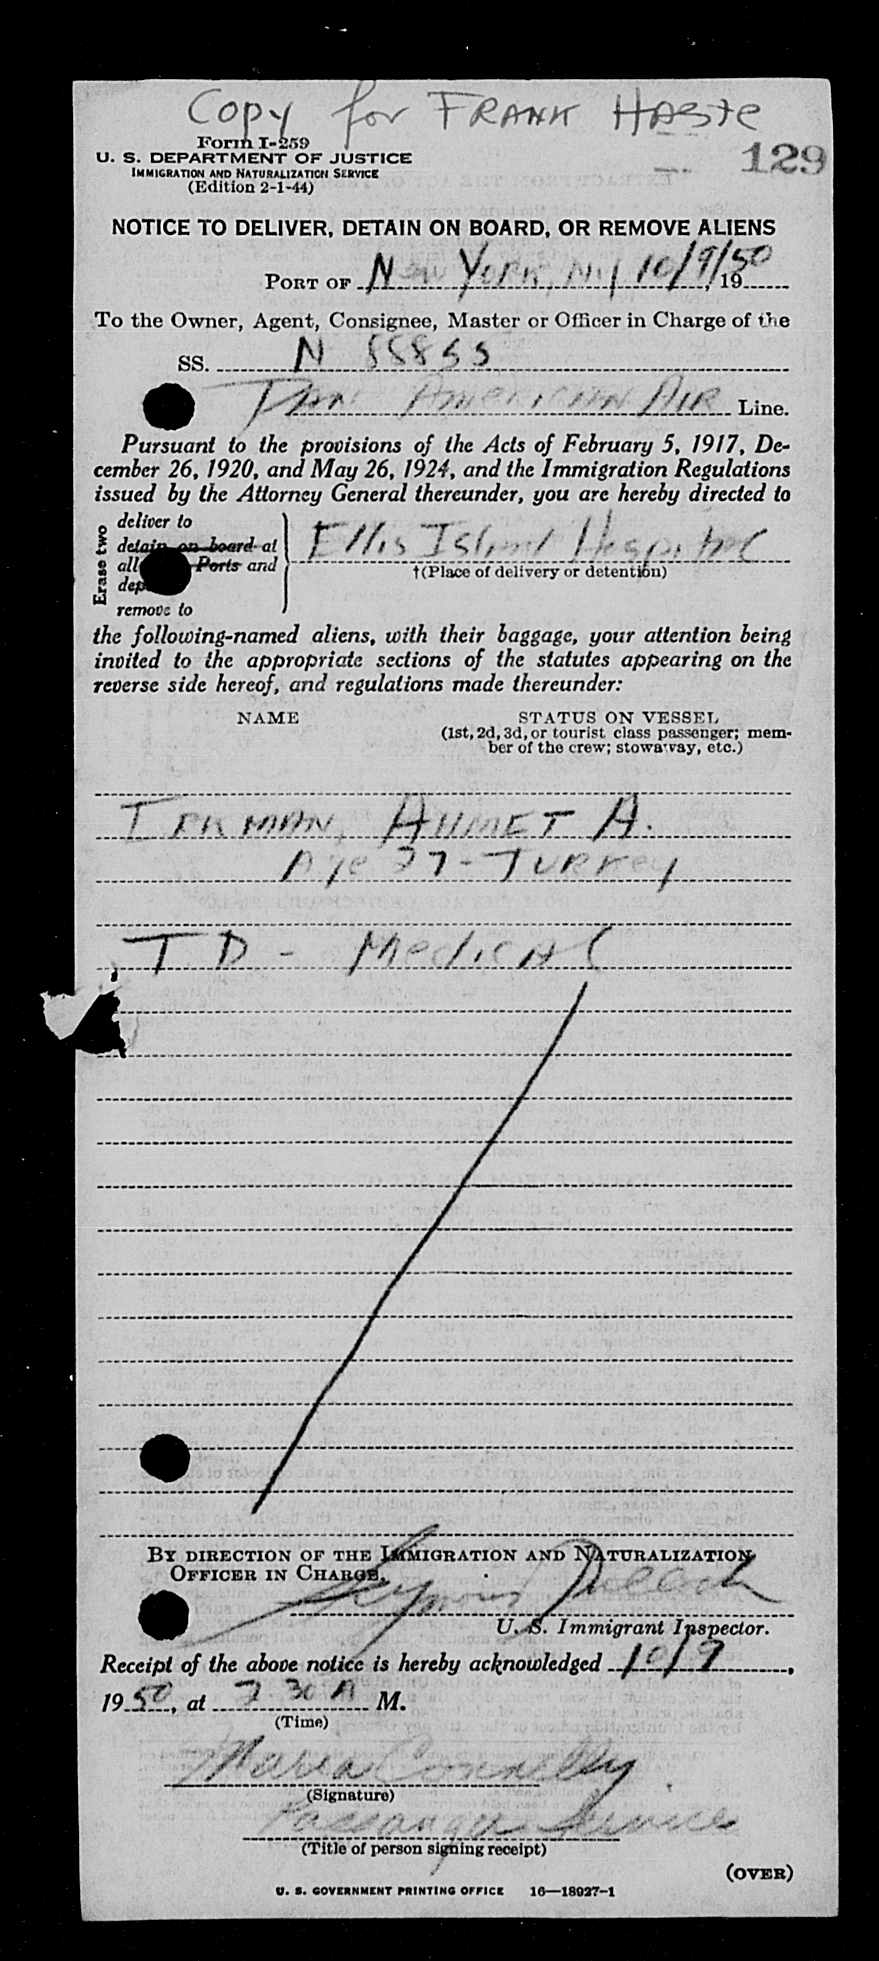 Copy for FRANK HASTE
Form I-259
129
U. S. DEPARTMENT OF JUSTICE
IMMIGRATION AND NATURALIZATION SERVICE
(Edition 2-1-44)
NOTICE TO DELIVER, DETAIN ON BOARD, OR REMOVE ALIENS
PORT OF New York, NY 10/9/50, 19
To the Owner, Agent, Consignee, Master or Officer in Charge of the
SS. N 88855
Pan American Air Line.
Pursuant to the provisions of the Acts of February 5, 1917, De-
cember 26, 1920, and May 26, 1924, and the Immigration Regulations
issued by the Attorney General thereunder, you are hereby directed to
Erase two
deliver to
detain on board at
all Ports and
remove to
Ellis Island Hospital
†(Place of delivery or detention)
the following-named aliens, with their baggage, your attention being
invited to the appropriate sections of the statutes appearing on the
reverse side hereof, and regulations made thereunder:
NAME
STATUS ON VESSEL
(1st, 2d, 3d, or tourist class passenger; mem-
ber of the crew; stowaway, etc.)
AHMET A.
Age 27 - TURKEY
TD - MEDICAL
BY DIRECTION OF THE IMMIGRATION AND NATURALIZATION
OFFICER IN CHARGE.
Seymour
U. S. Immigrant Inspector.
Receipt of the above notice is hereby acknowledged 10/9,
1950, at 7 30 A M.
(Time)
Maria Connelly
(Signature)
Passanger Service
(Title of person signing receipt)
(OVER)
U. S. GOVERNMENT PRINTING OFFICE 16—18927-1